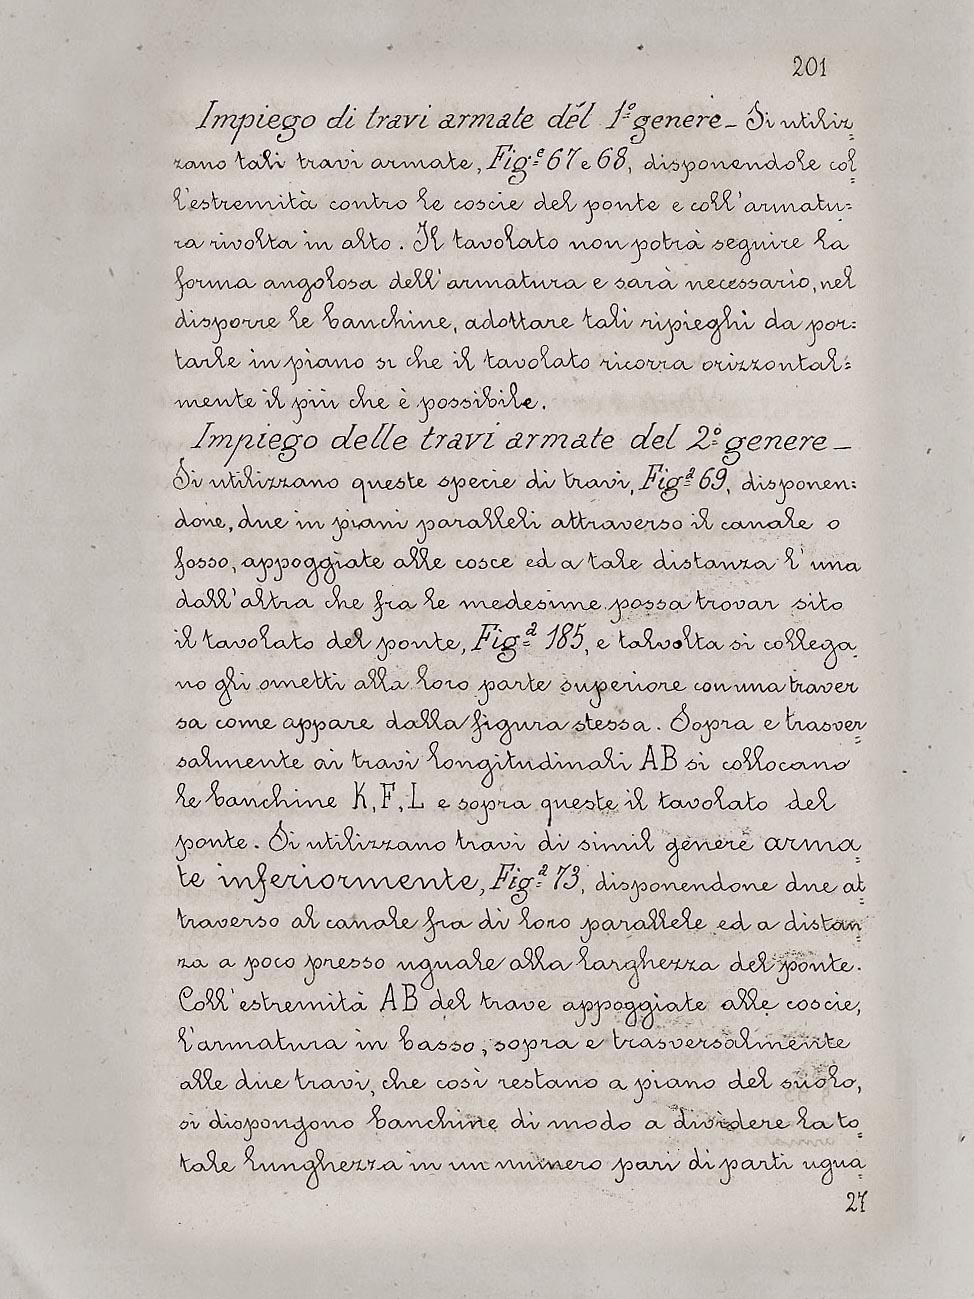 201
Impiego di travi armate del 1º genere_ Si utiliz=
zano tali travi armate, Fig.e 67 e 68, disponendole col=
l'estremità contro le coscie del ponte e coll'armatu=
ra rivolta in alto. Il tavolato non potrà seguire la
forma angolosa dell'armatura e sarà necessario, nel
disporre le banchine, adottare tali ripieghi da por=
tarle in piano si che il tavolato ricorra orizzontal=
mente il più che è possibile.
Impiego delle travi armate del 2º genere_
Si utilizzano queste specie di travi, Fig.a 69, disponen=
done, due in piani paralleli attraverso il canale o
fosso, appoggiate alle cosce ed a tale distanza l'una
dall'altra che fra le medesime possa trovar sito
il tavolato del ponte, Fig.a 185, e talvolta si collega=
no gli ometti alla loro parte superiore con una traver
sa come appare dalla figura stessa. Sopra e trasver=
salmente ai travi longitudinali AB si collocano
le banchine K, F, L e sopra queste il tavolato del
ponte. Si utilizzano travi di simil genere arma=
te inferiormente, Fig.a 73, disponendone due at=
traverso al canale fra di loro parallele ed a distan=
za a poco presso uguale alla larghezza del ponte.
Coll'estremità AB del trave appoggiate alle coscie,
l'armatura in basso, sopra e trasversalmente
alle due travi, che così restano a piano del suolo,
si dispongono banchine di modo a dividere la to=
tale lunghezza in un numero pari di parti ugua=
27